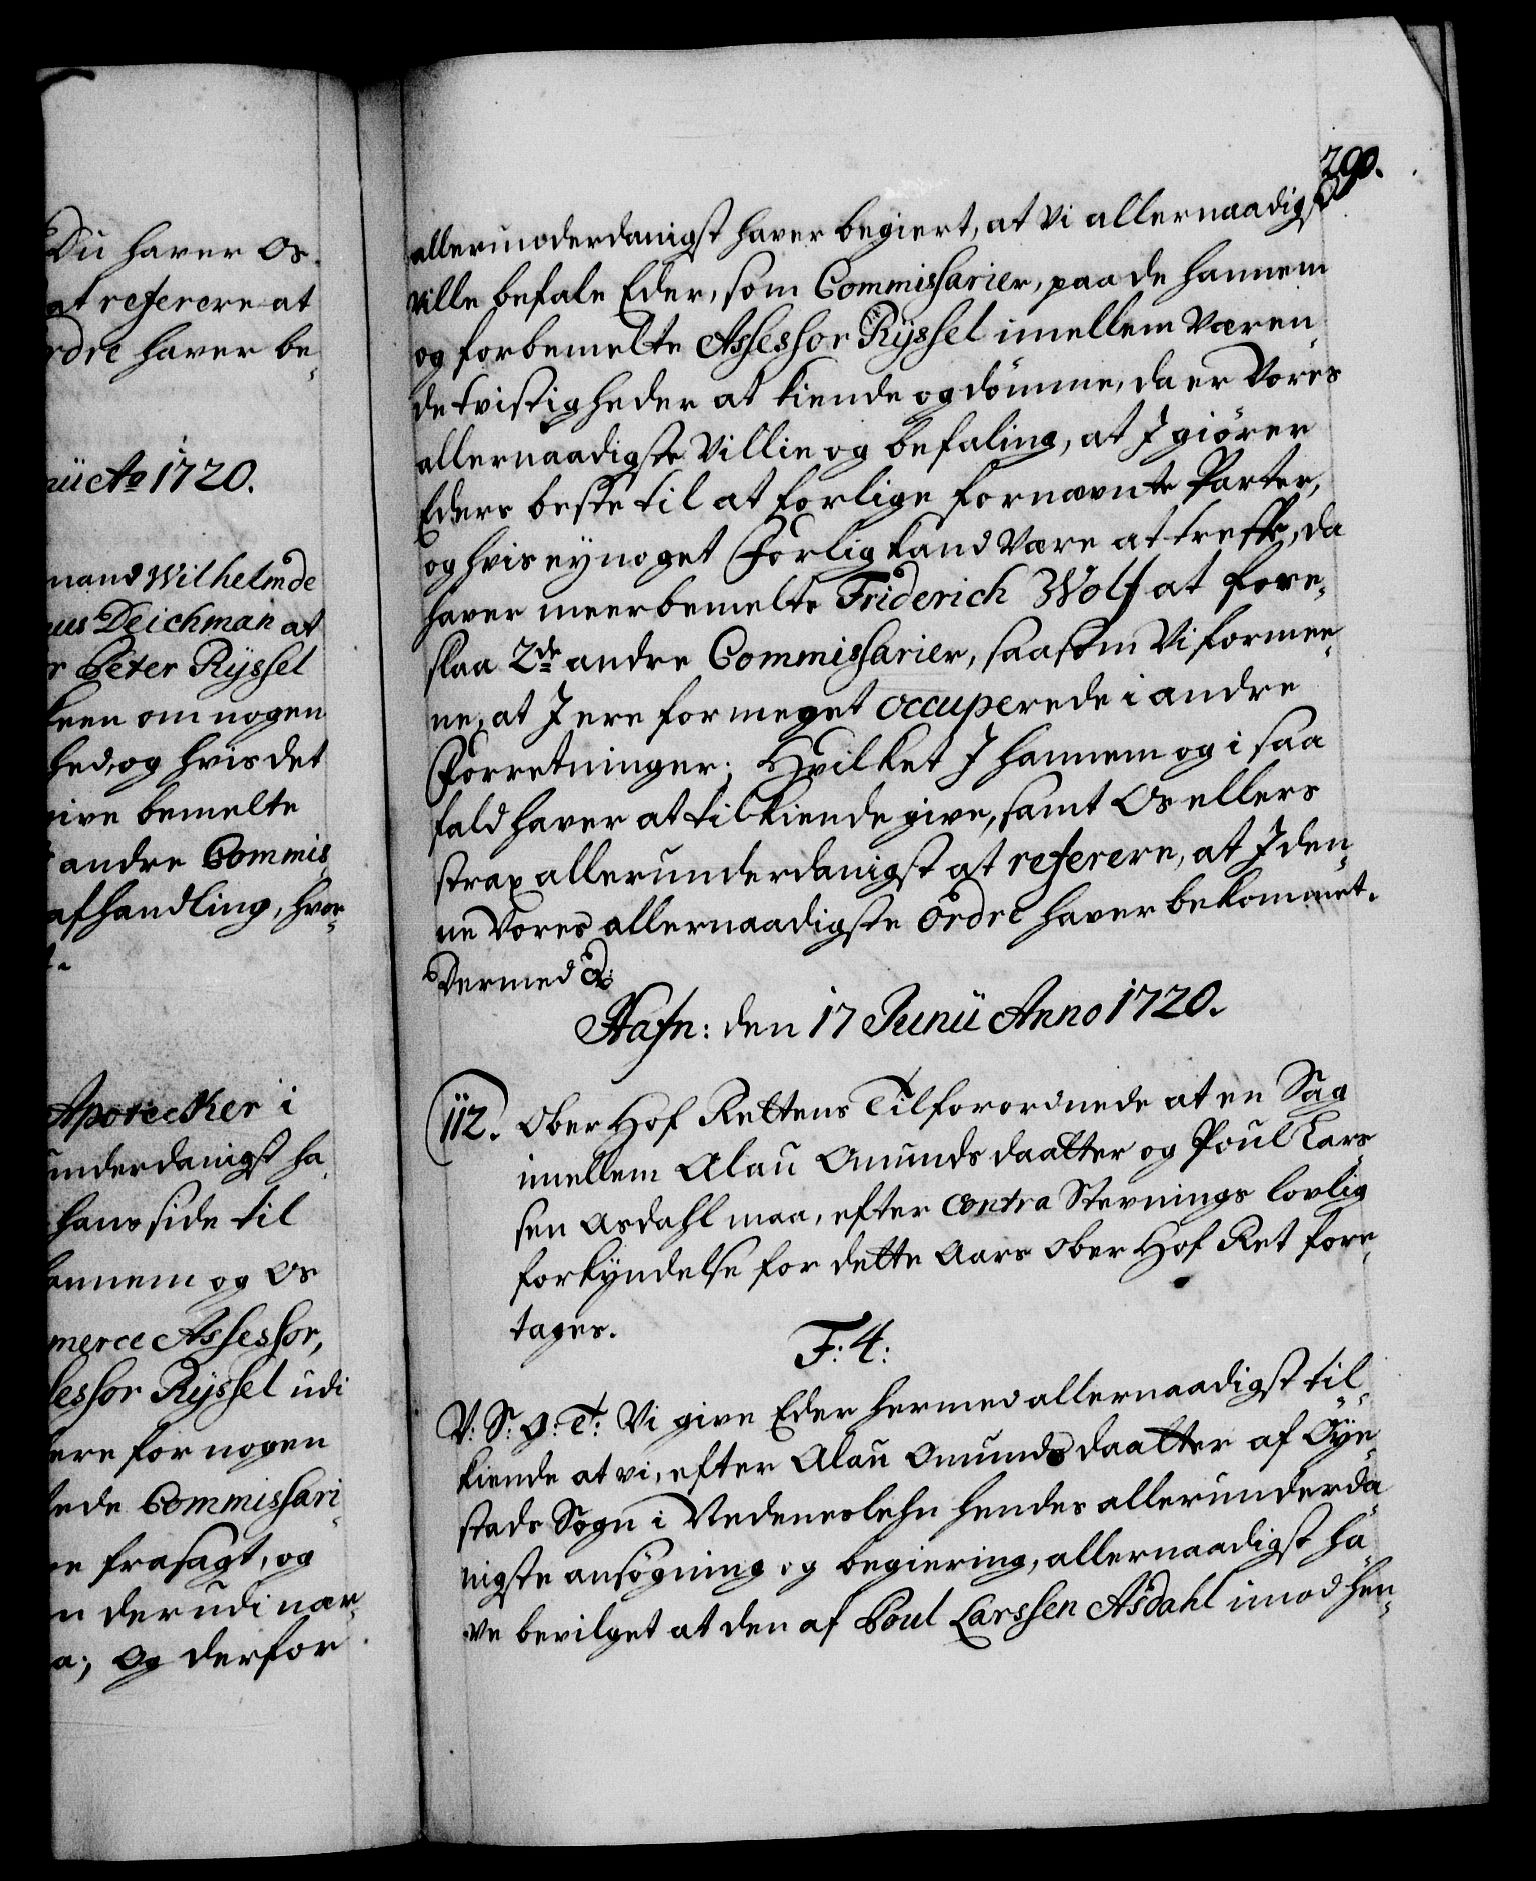 Du haver Os
at referere at
rdre haver be„
nii Ao 1720.
mand Wilhelm de
us Deichman at
r Peter Ryssel
keen om nogen
hed, og hvis det
give bemelte
andre Commis„
afhandling, hvor„
t.
Apotecker i
underdanigst ha„
hans side til
hannem og Os
merce Assessor,
sessor Ryssel udi
være for nogen
lede Commissari„
re frasagt, og
n der udi nær„
a; Og derfor
290.
allerunderdanigst haver begiert, at Vi allernaadigst
ville befale Eder, som Commissarier, paa de hannem
og forbemelte Assessor Ryssel imellem Væren„
de tvistigheder at kiende og dømme, da er Vores
allernaadigste Villie og befaling, at J giører
Eders beste til at forlige fornævnte Parter,
og hvis ey noget Forlig kand Være at treffe, da
haver meerbemelte Friderich Wolf at fore„
slaa 2de andre Commissarier, saasom Vi formee„
ne, at J ere for meget occuperede i andre
Forretninger; Hvilket J hannem og i saa
fald haver at tilkiende give, samt Os ellers
strax allerunderdanigst at referere, at J den„
ne Vores allernaadigste Ordre haver bekommet.
Dermed &:
Hafn: den 17 Junii Anno 1720.
112. Ober Hof Rettens Tilforordnede at en Sag
imellem Alau Omunds daatter og Poul Lars„
sen Asdahl maa, efter Contra Stevnings lovlig
forkyndelse for dette Aars Ober Hof Ret fore„
tages.
F: 4:
V: S: G: T: Vi give Eder hermed allernaadigst til„
kiende at vi, efter Alau Omunds daatter af Øye„
stads Sogn i Nedenes lehn hendes allerunderda„
nigste ansøgning og begiering, allernaadigst ha„
ve bevilget at den af Poul Larssen Asdahl imod hen„